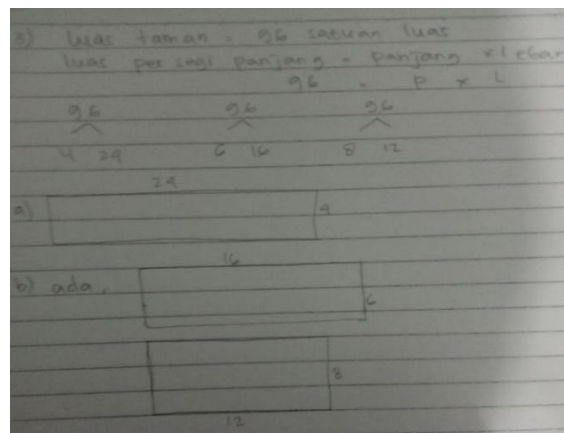 3) luas taman = 96 satuan luas
luas persegi panjang = panjang x lebar
96 = p x L
96 96 96
4 24 6 16 8 12
24
a) 4
16
b) ada. 6
8
12